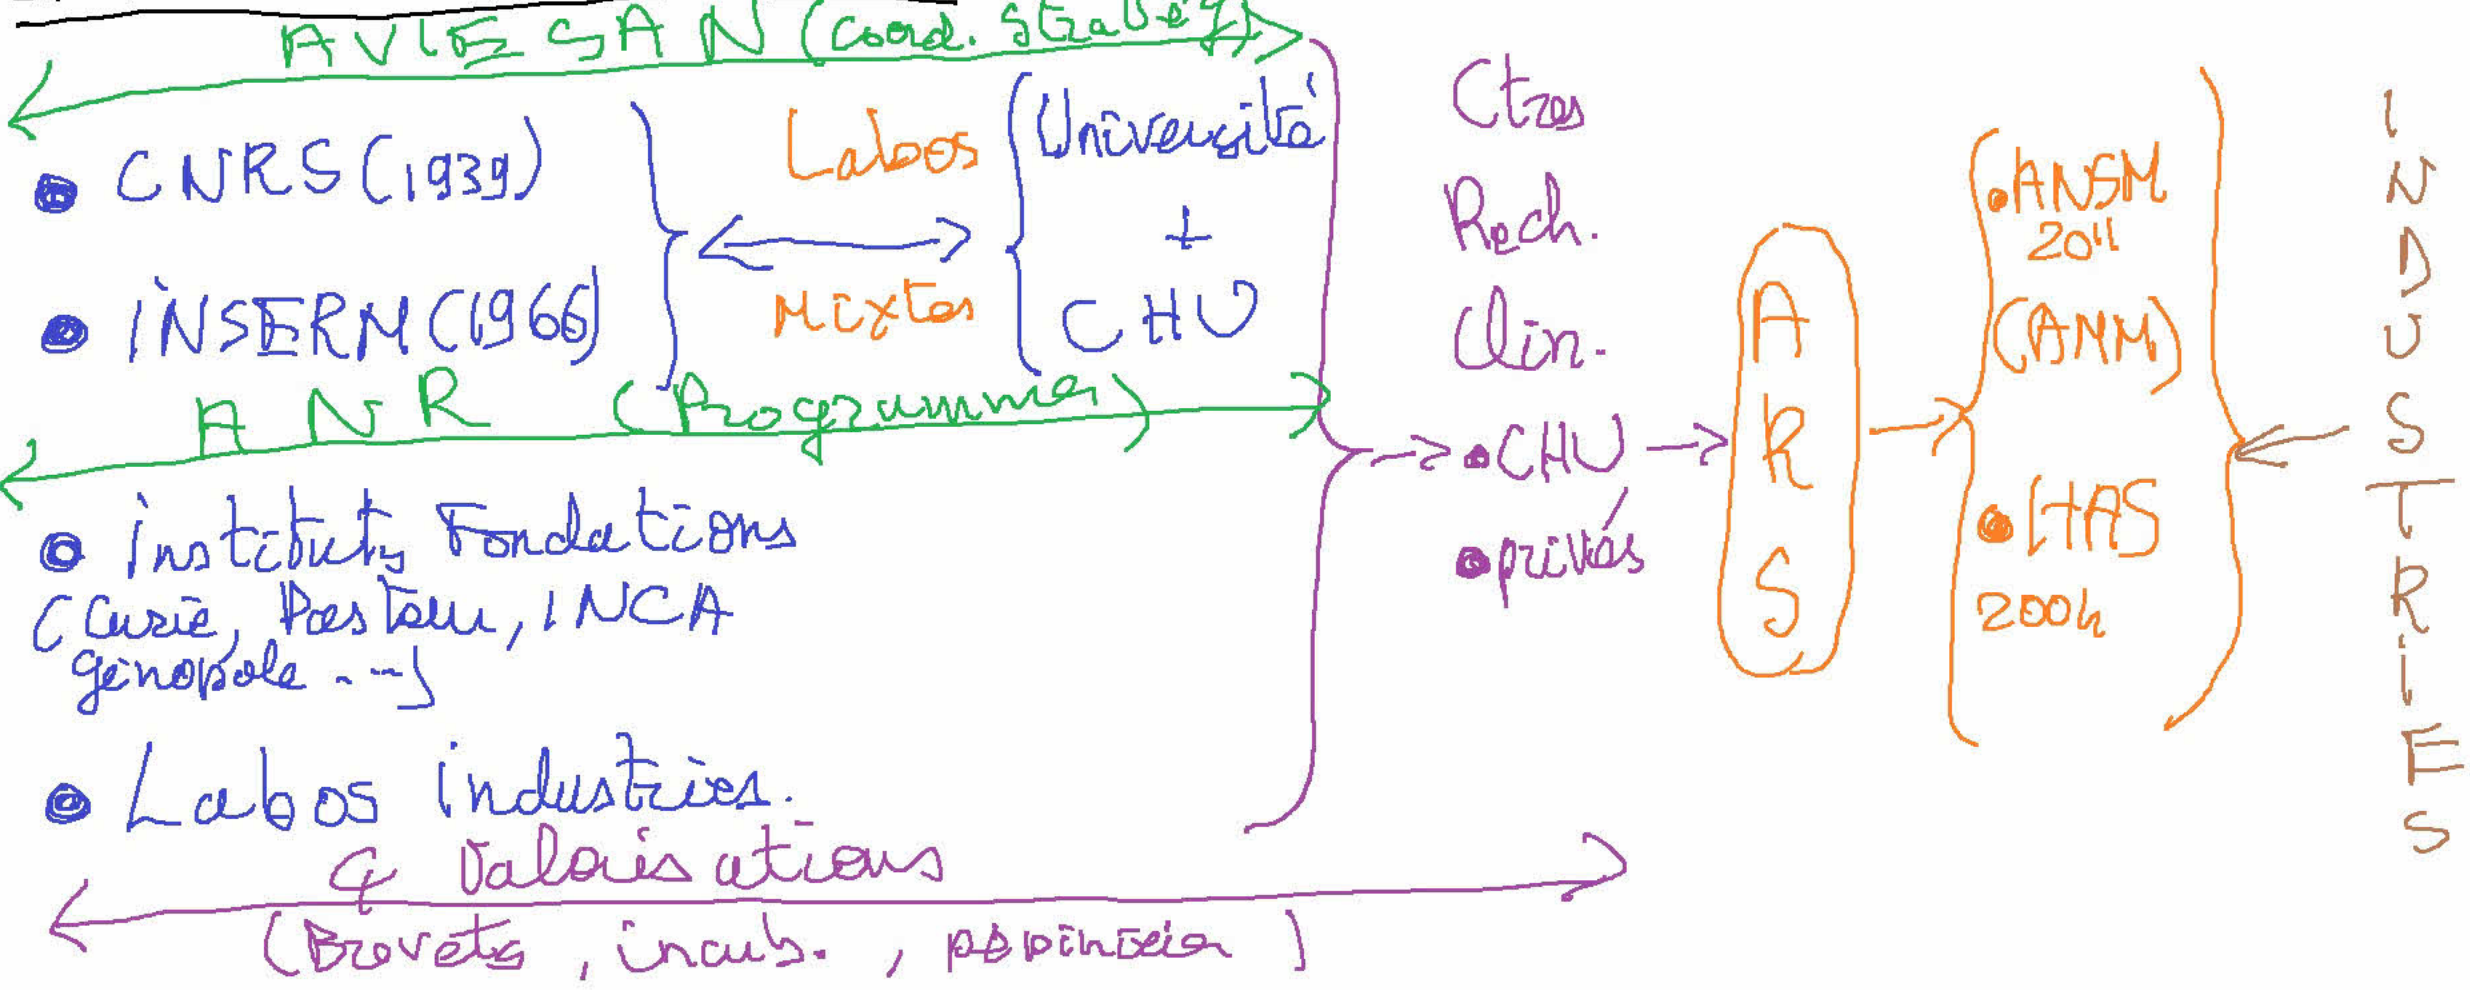 AVIESAN (Coord. Stratég)
• CNRS (1939)
• INSERM (1966)
Labos
Mixtes
Université
+
CHU
ANR (Programmes)
• instituts Fondations
(Curie, Pasteur, INCA
génopole ---)
• Labos industries.
Valorisations
(Brevets, incub., pépinière)
Ctres
Rech.
Clin.
• CHU
• privés
ARS
• ANSM
2011
(ANM)
• HAS
2004
INDUSTRiES